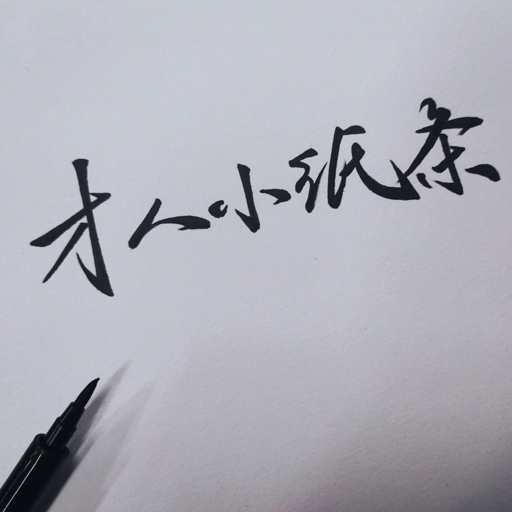 才人小纸条